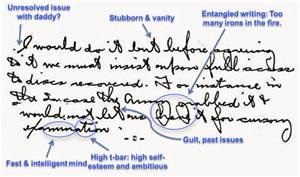 Unresolved issue
with daddy?
Stubborn & vanity
Entangled writing: Too
many irons in the fire.
I would do it but before agreeing
to it we must insist upon full access
to discs recovered. For instance in
the case the Army it &
would not let us it for cursory
examination.
Gult, past issues
Fast & intelligent mind
High t-bar: high self-
esteem and ambitious